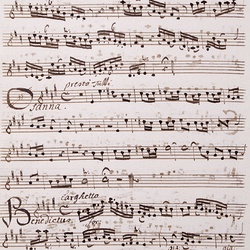 presto Tutti
Osanna.
Larghetto
Benedictus